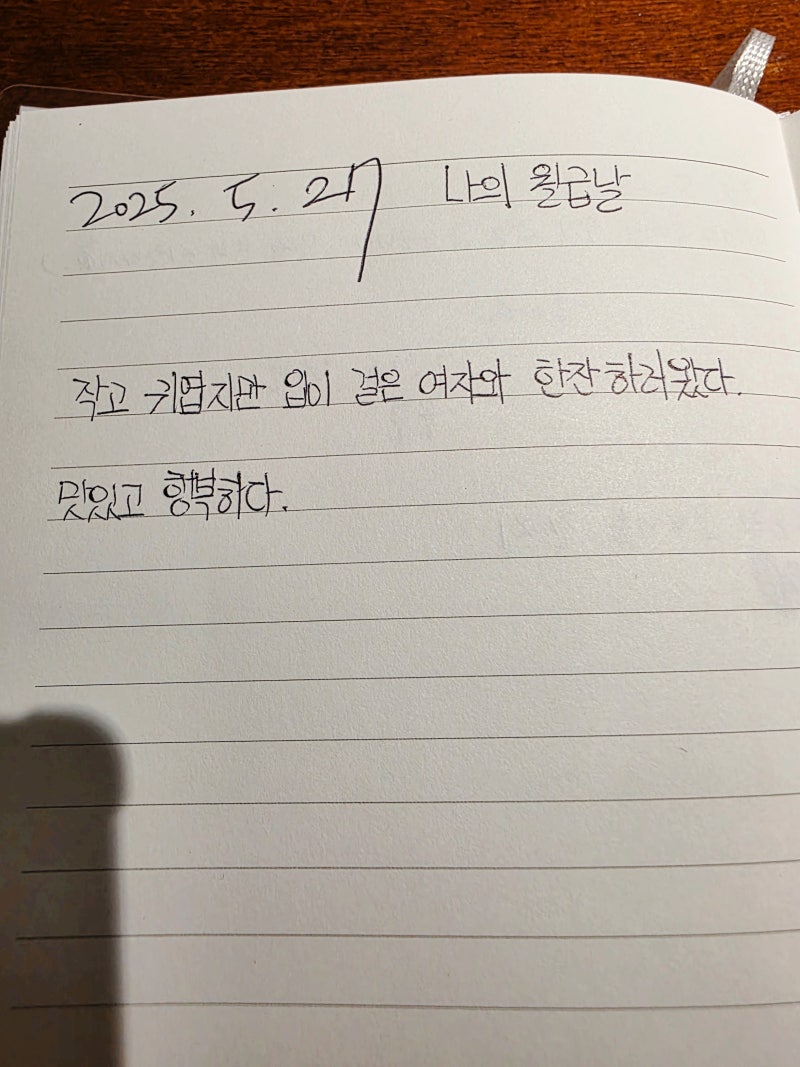 2025. 5. 27 나의 월급날
작고 귀엽지만 입이 걸은 여자와 한잔하러왔다.
맛있고 행복하다.